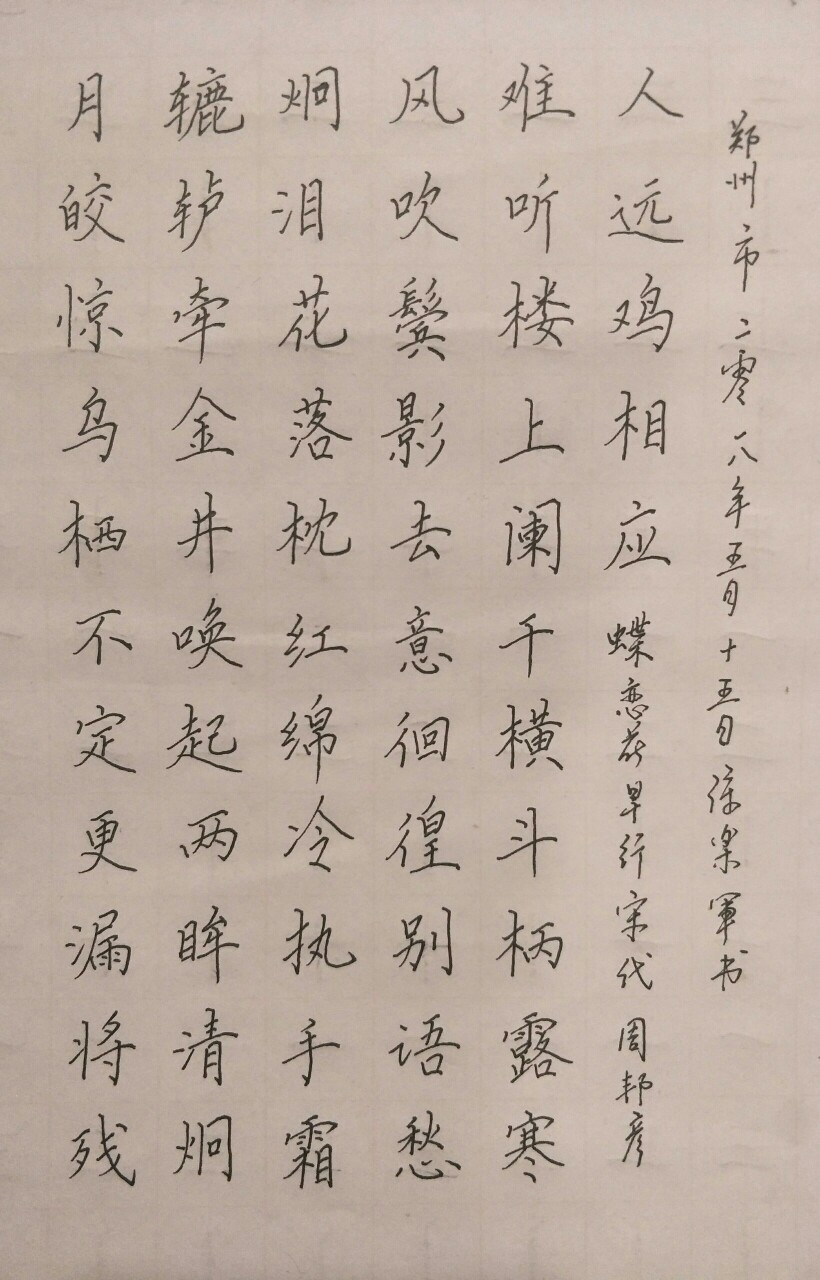 月皎惊乌栖不定更漏将残
辘轳牵金井唤起两眸清炯
炯泪花落枕红绵冷执手霜
风吹鬓影去意徊徨别语愁
难听楼上阑千横斗柄露寒
人远鸡相应 蝶恋花早行宋代周邦彦
郑州市二零一八年五月十五日军书